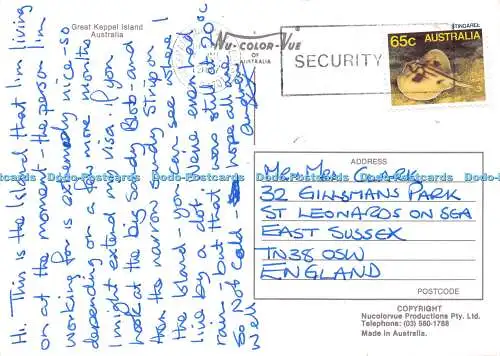 Great Keppel Island
Australia
NU-COLOR-VUE
OF
AUSTRALIA
SECURITY
STINGAREE
65c AUSTRALIA
Hi. This is the Island that I'm living
on at the moment - the person I'm
working for is extremely nice - so
depending on a few more months
I might extend my visa. If you
look at the big Sandy Blob - and
then the narrow sandy strip on
the Island - you can see where I
live by a dot. We've even had
rain - but that was still at 20°c
So Not Cold - hope all are
well
ADDRESS
Mr Mrs
32 GILLSMANS PARK
ST LEONARDS ON SEA
EAST SUSSEX
TN38 0SW
ENGLAND
POSTCODE
COPYRIGHT
Nucolorvue Productions Pty. Ltd.
Telephone: (03) 560-1788
Made in Australia
Postcards-Domain.Co.Uk